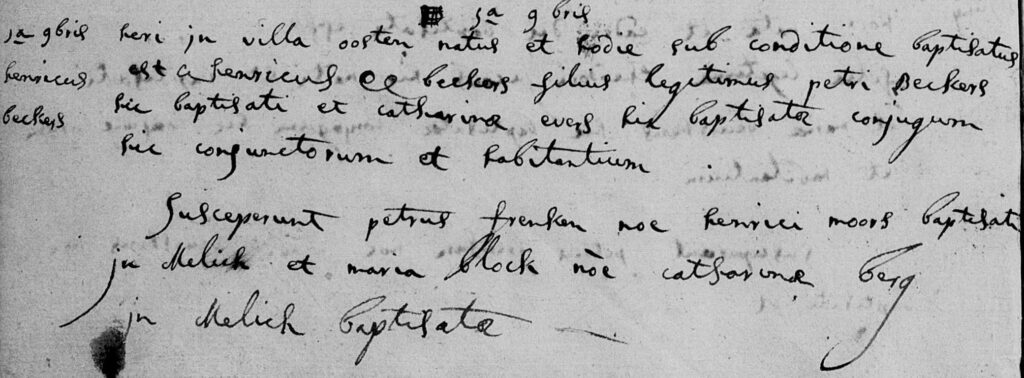 5a 9bris
5a 9bris heri in villa oosten natus et hodie sub conditione baptisatus
henricus est henricus beckers filius legitimus petri Beckers
beckers hic baptisati et catharinæ evers hic baptisatæ conjugum
hic conjunctorum et habitantium
Susceperunt petrus frenken noe henrici moors baptisati
in Melick et maria block nõe catharinæ berg
in Melick baptisatæ